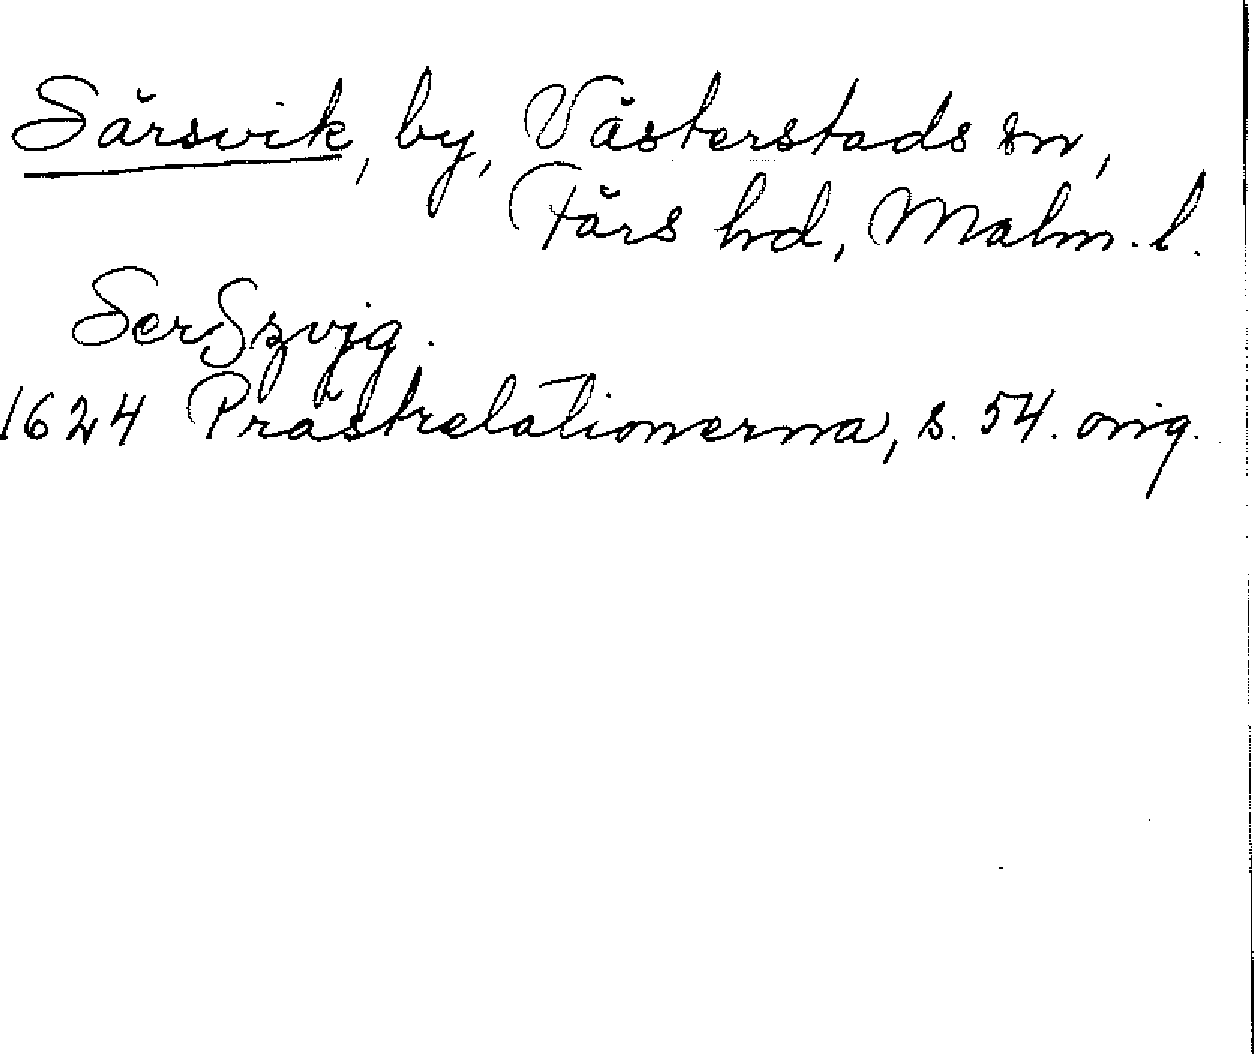 Särsvik, by, Västerstads sn,
Färs hd, Malm. l.
SerSzvjg.
1624 Prästrelationerna, s. 54. orig.